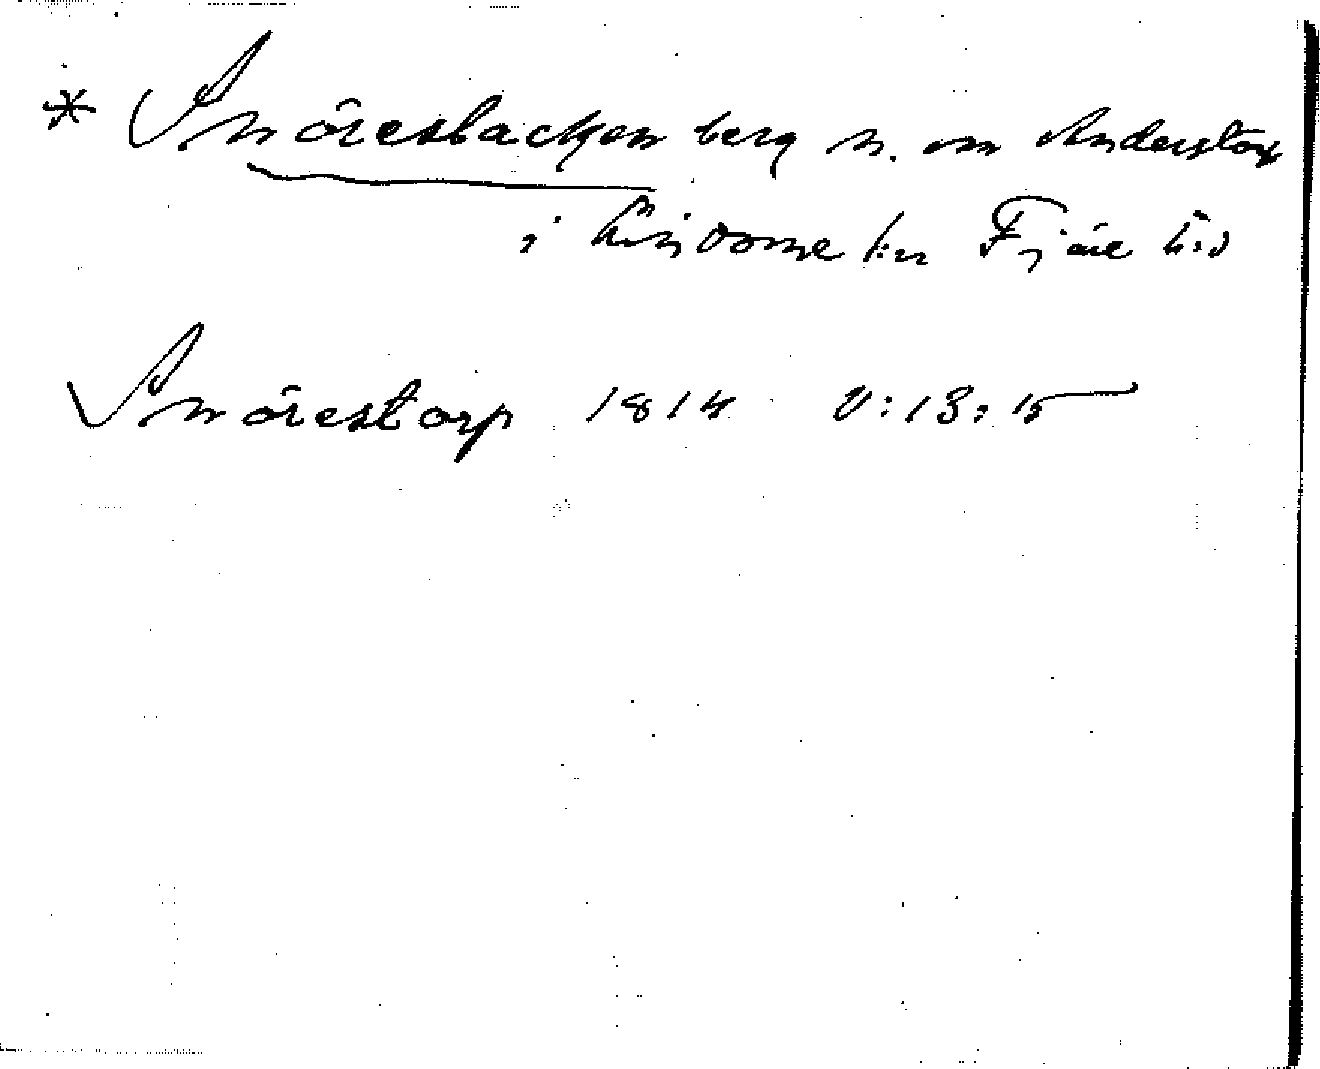 * Snöresbacken berg n. om Anderstorp
i Lindome sn Fjäre hd
Snörestorp 1814 V:13:15